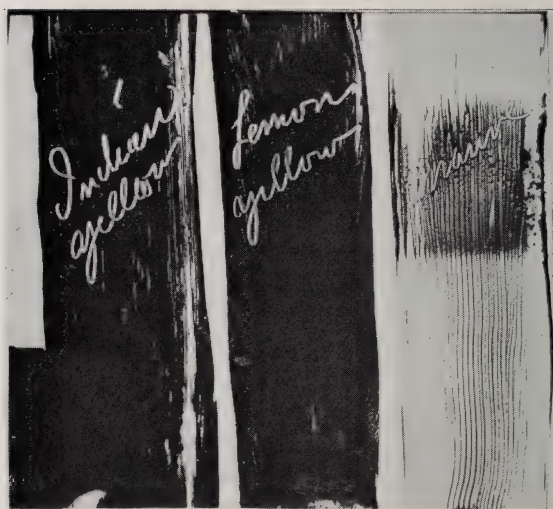 Indian
yellow
Lemon
yellow